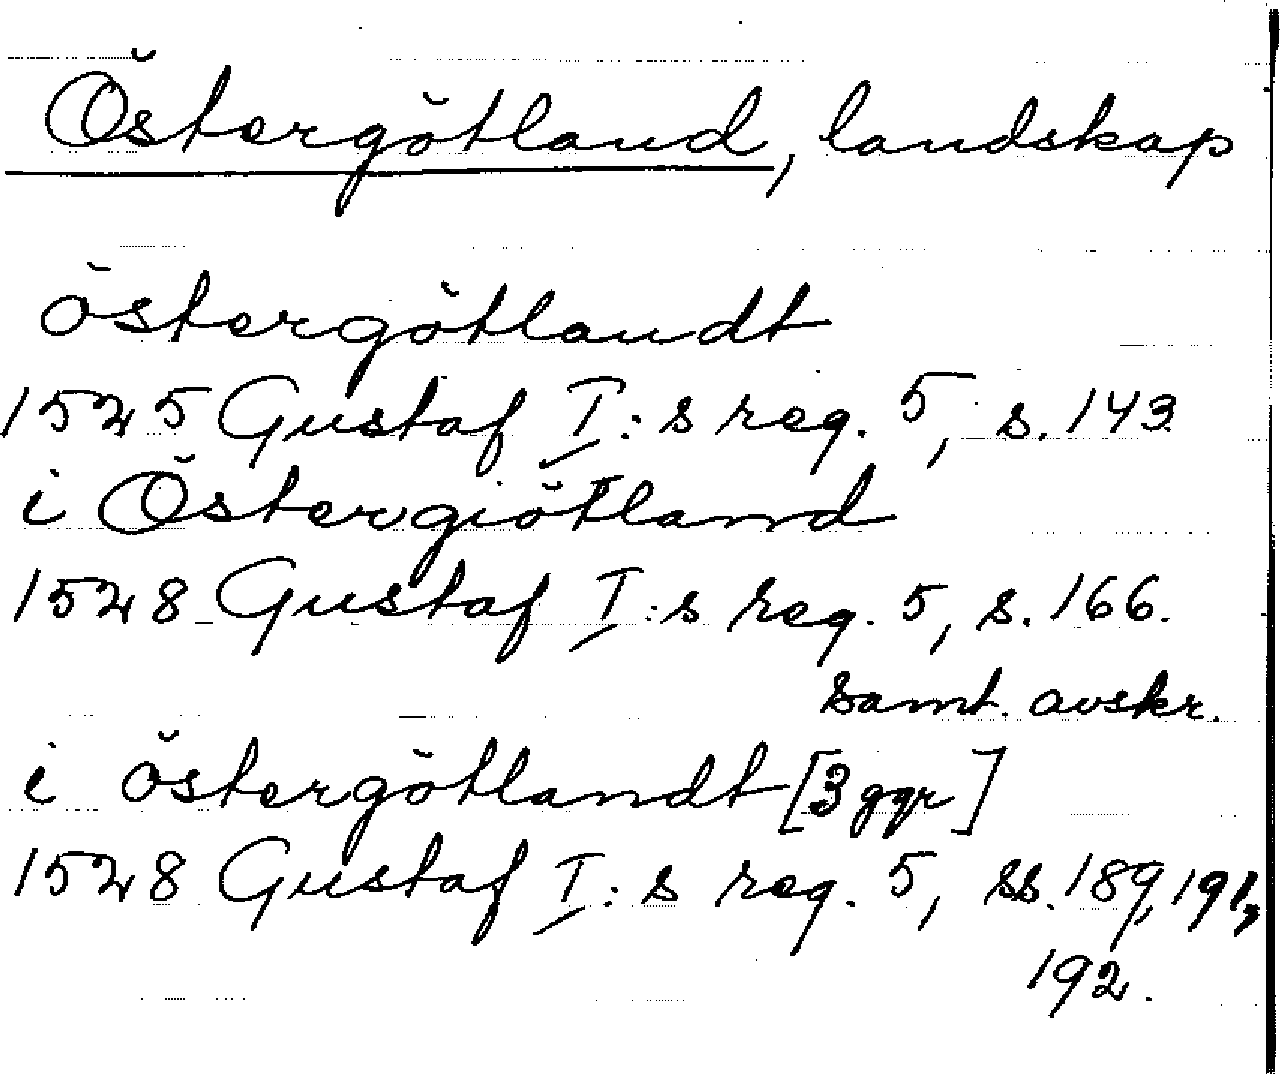 Östergötland, landskap
östergötlandt
1525 Gustaf I:s reg. 5, s. 143
i Östergiötland
1528 Gustaf I:s reg. 5, s. 166.
samt. avskr.
i östergötlandt [3 ggr]
1528 Gustaf I:s reg. 5, ss. 189, 191,
192.